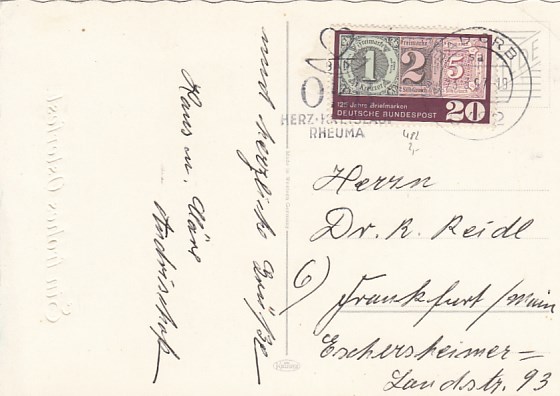 und herzliche Grüße
Hans u. Kläre
Freimark
1
2
5
125 Jahre Briefmarken
DEUTSCHE BUNDESPOST
20
ORB
HERZ-KREISLAUF
RHEUMA
Herrn
Dr. K. Reidl
6) Frankfurt/Main
Eschersheimer=
Landstr. 93